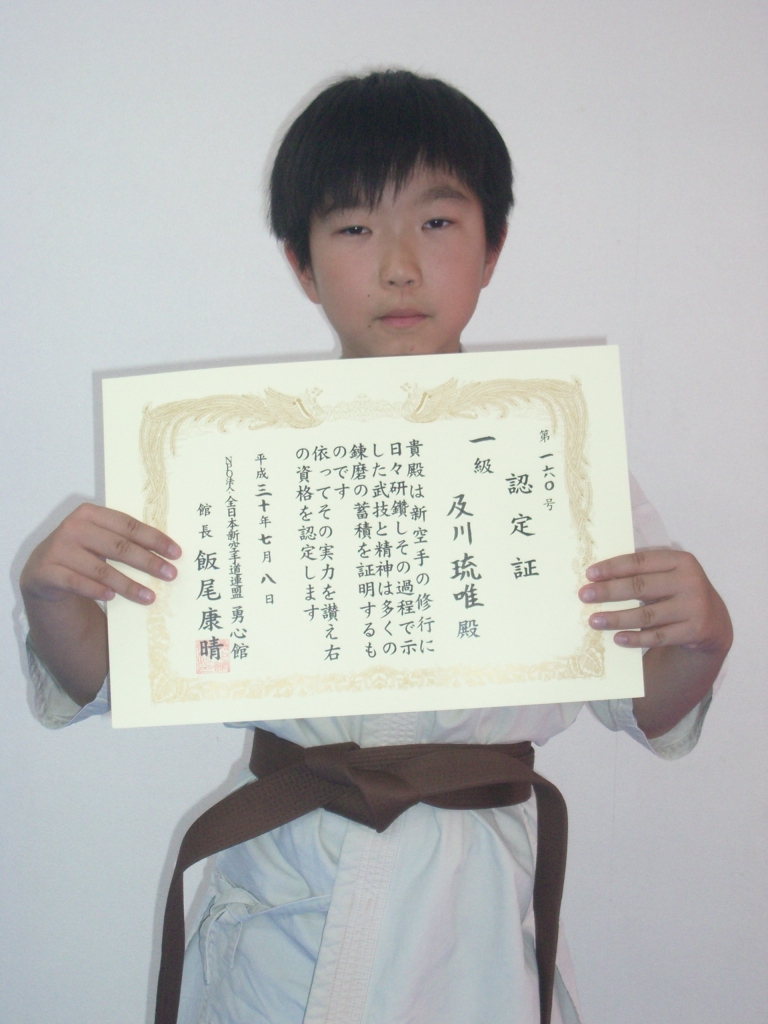 第一六〇号
認定証
一級
及川琉唯殿
貴殿は新空手の修行に
日々研鑽しその過程で示
した武技と精神は多くの
錬磨の蓄積を証明するも
のです
依ってその実力を讃え右
の資格を認定します
平成三十年七月八日
NPO法人全日本新空手道連盟 勇心館
館長 飯尾康晴